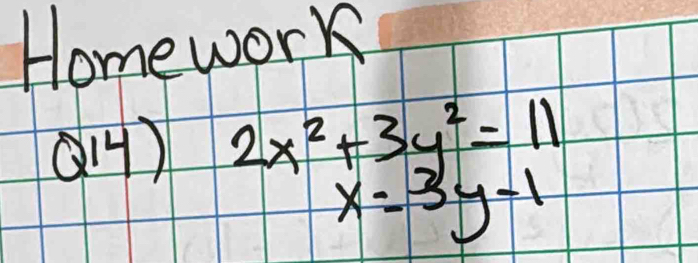 Homework
Q14) 2x² + 3y² = 11
x = 3y - 1